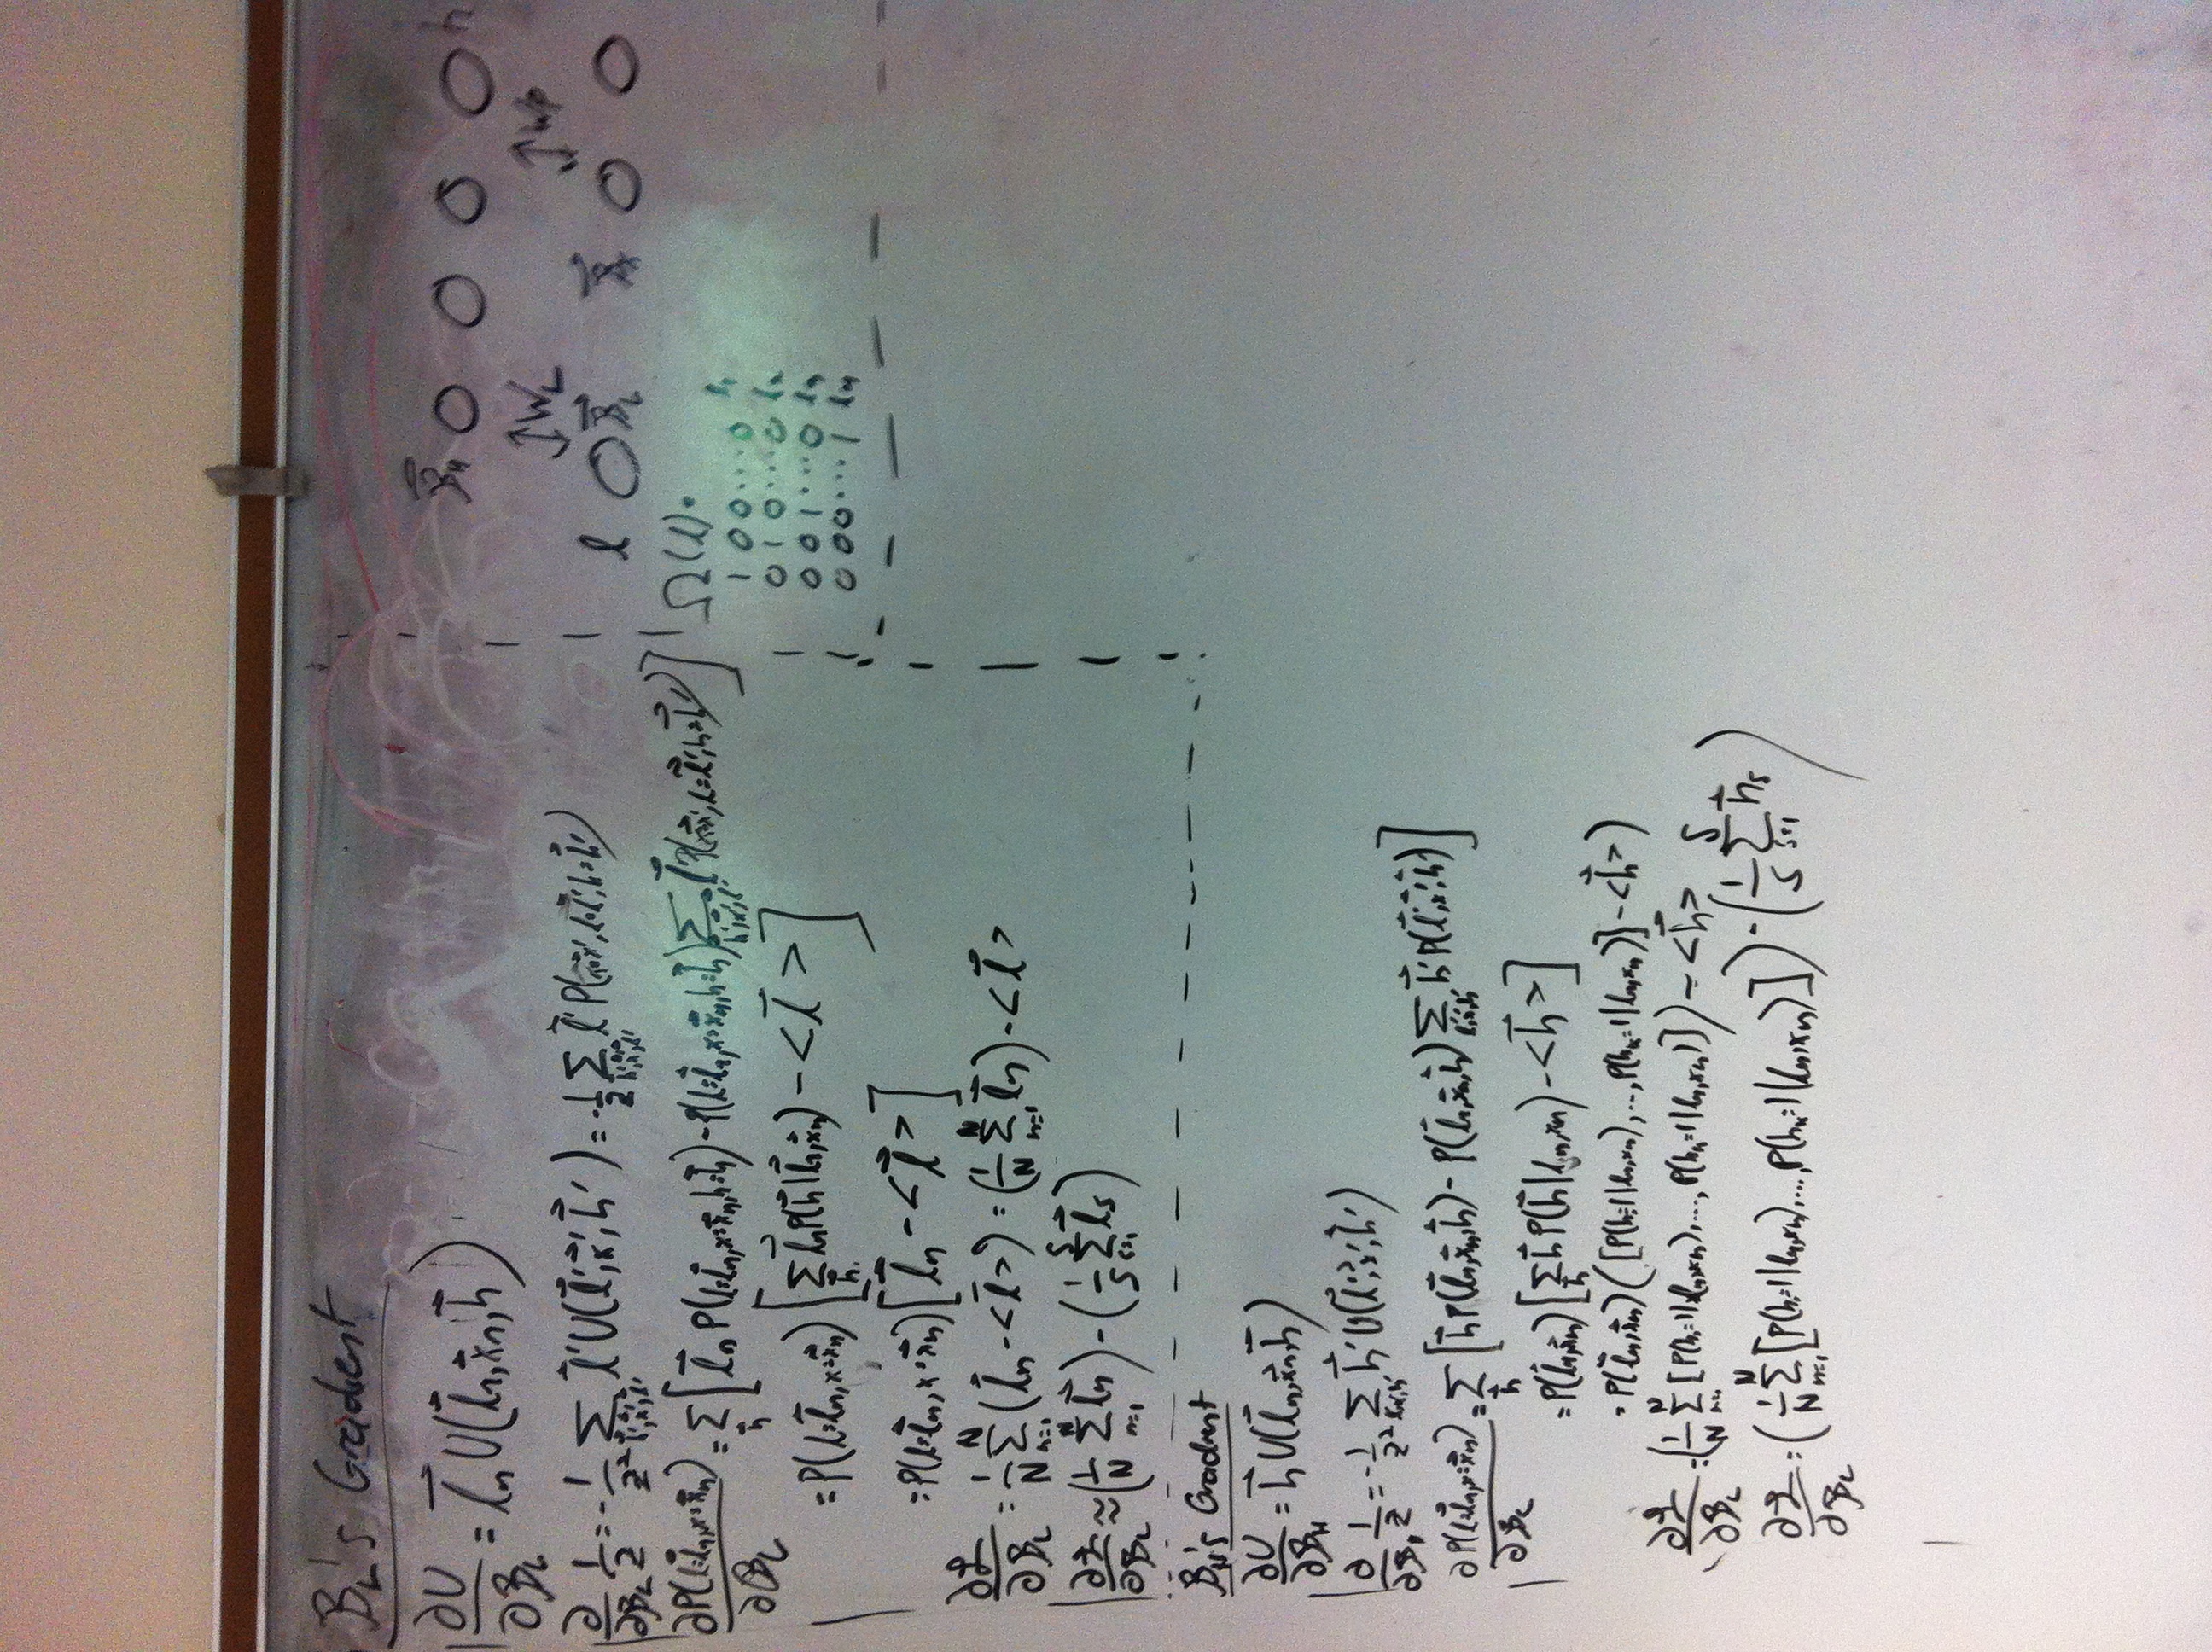 B_L's Gradient
∂U/∂B_L = l⃗_n U(l⃗_n, x⃗_n, h⃗)
∂/∂B_L 1/Z = -1/Z² Σ_{h⃗',x⃗',l⃗'} l⃗' U(l⃗', x⃗', h⃗') = -1/Z Σ_{h⃗',x⃗',l⃗'} l⃗' P(x=x⃗', l=l⃗', h=h⃗')
∂P(l=l⃗_n, x=x⃗_n)/∂B_L = Σ_h⃗ [l⃗_n P(l=l⃗_n, x=x⃗_n, h=h⃗) - P(l=l⃗_n, x=x⃗_n, h=h⃗) Σ_{h⃗',x⃗',l⃗'} l⃗' P(x=x⃗', l=l⃗', h=h⃗')]
= P(l=l⃗_n, x=x⃗_n) [Σ_h⃗ l⃗_n P(h⃗|l⃗_n, x⃗_n) - <l⃗>]
= P(l=l⃗_n, x=x⃗_n) [l⃗_n - <l⃗>]
∂ℒ/∂B_L = 1/N Σ_{n=1}^N (l⃗_n - <l⃗>) = (1/N Σ_{n=1}^N l⃗_n) - <l⃗>
∂ℒ/∂B_L ≈ (1/N Σ_{n=1}^N l⃗_n) - (1/S Σ_{s=1}^S l⃗_s)
B_H's Gradient
∂U/∂B_H = h⃗ U(l⃗_n, x⃗_n, h⃗)
∂/∂B_H 1/Z = -1/Z² Σ_{l',x',h'} h⃗' U(l⃗', x⃗', h⃗')
∂P(l=l⃗_n, x=x⃗_n)/∂B_L = Σ_h⃗ [h⃗ P(l⃗_n, x⃗_n, h⃗) - P(l⃗_n, x⃗_n, h⃗) Σ_{l',x',h'} h⃗' P(l⃗', x⃗', h⃗')]
= P(l⃗_n, x⃗_n) [Σ_h⃗ h⃗ P(h⃗|l_n, x_n) - <h⃗>]
= P(l⃗_n, x⃗_n) ([P(h_1=1|l_n, x_n), ..., P(h_k=1|l_n, x_n)] - <h⃗>)
∂ℒ/∂B_L = (1/N Σ_{n=1}^N [P(h_1=1|l_n, x_n), ..., P(h_k=1|l_n, x_n)]) - <h⃗>
∂ℒ/∂B_L = (1/N Σ_{n=1}^N [P(h_1=1|l_n, x_n), ..., P(h_k=1|l_n, x_n)]) - (1/S Σ_{s=1}^S h⃗_s)
B⃗_H h
↕W_L
l B⃗_L
Ω(l):
1 0 0 ... 0 l_1
0 1 0 ... 0 l_2
0 0 1 ... 0 l_3
0 0 0 ... 1